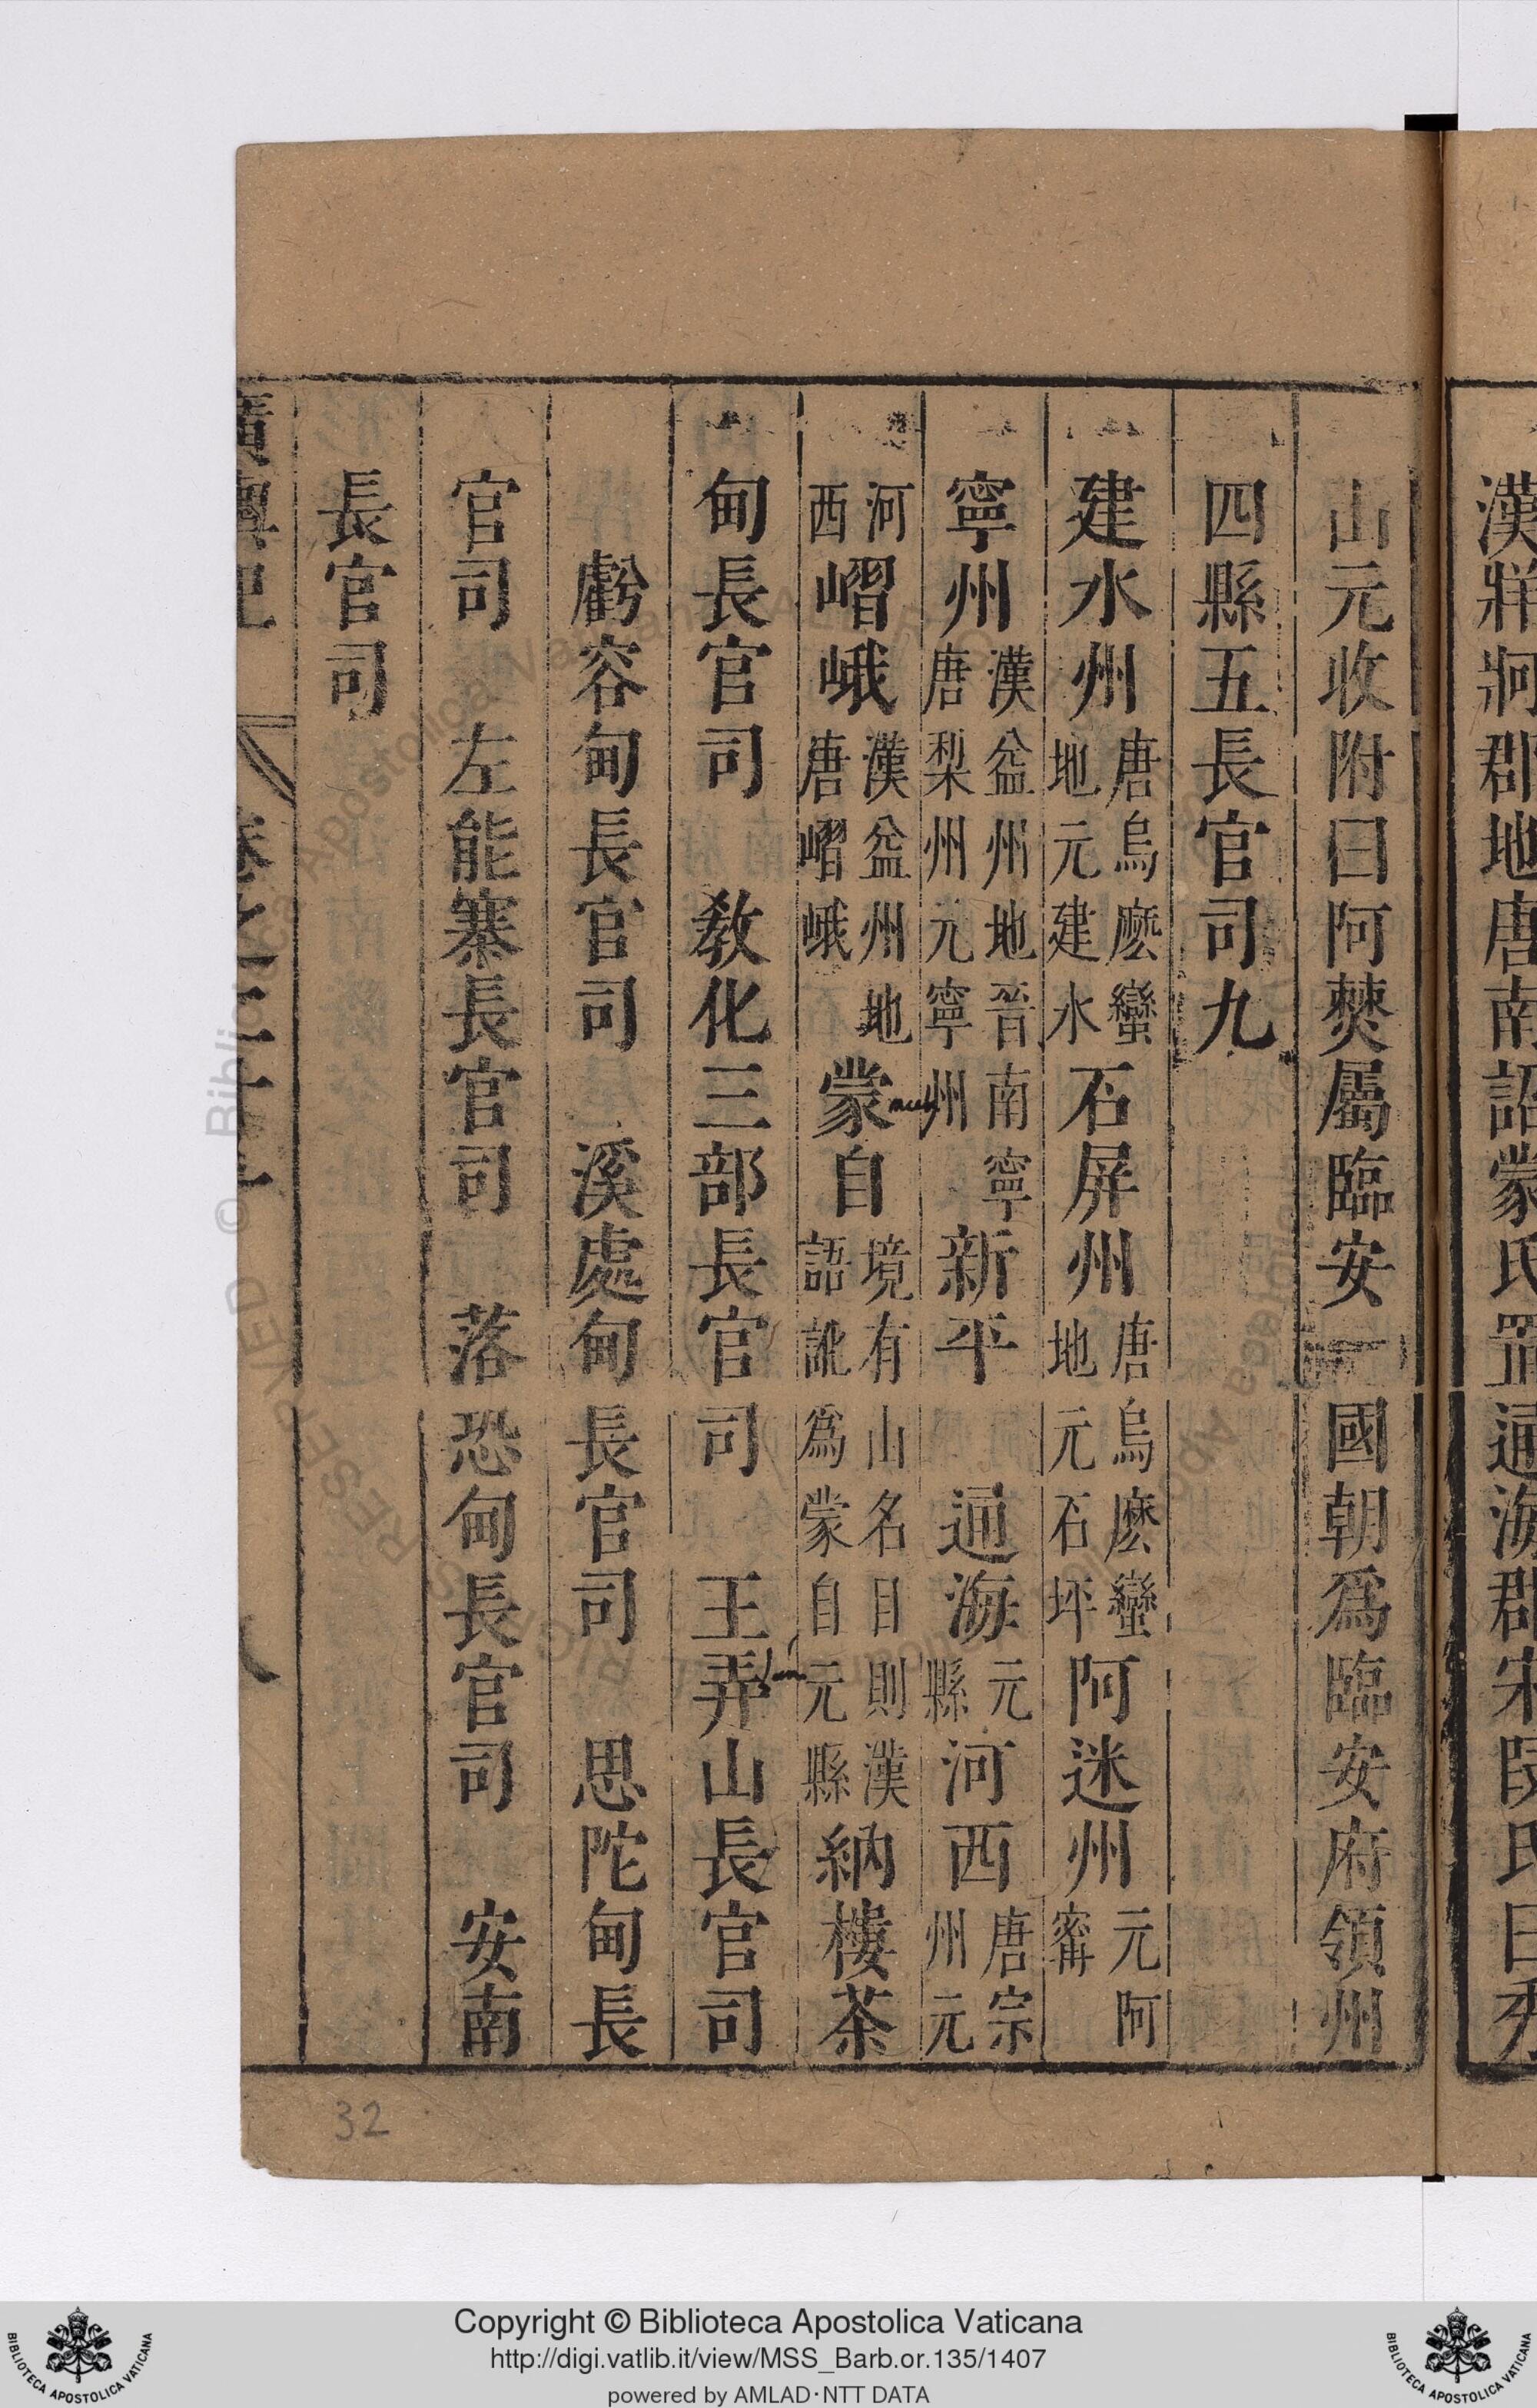 漢牂牁郡地唐南詔蒙氏
通海郡宋段氏曰秀
山元收附曰阿僰屬臨安 國朝爲臨安府領州
四縣五長官司九
建水州唐烏麽蠻地元建水 石屏州唐烏麽蠻地元石坪 阿迷州元阿甯
寧州漢益州地晉南寧唐梨州元寧州 新平 通海元縣 河西唐宗州元
河西 嶍峨漢益州地唐嶍峨 蒙自境有山名目則漢語訛爲蒙自元縣 納樓茶
甸長官司 教化三部長官司 王弄山長官司
虧容甸長官司 溪處甸長官司 思陀甸長
官司 左能寨長官司 落恐甸長官司 安南
長官司
廣輿記 卷之二十一
32
Copyright © Biblioteca Apostolica Vaticana
http://digi.vatlib.it/view/MSS_Barb.or.135/1407
powered by AMLAD·NTT DATA
BIBLIOTECA APOSTOLICA VATICANA
BIBLIOTECA APOSTOLICA VATICANA